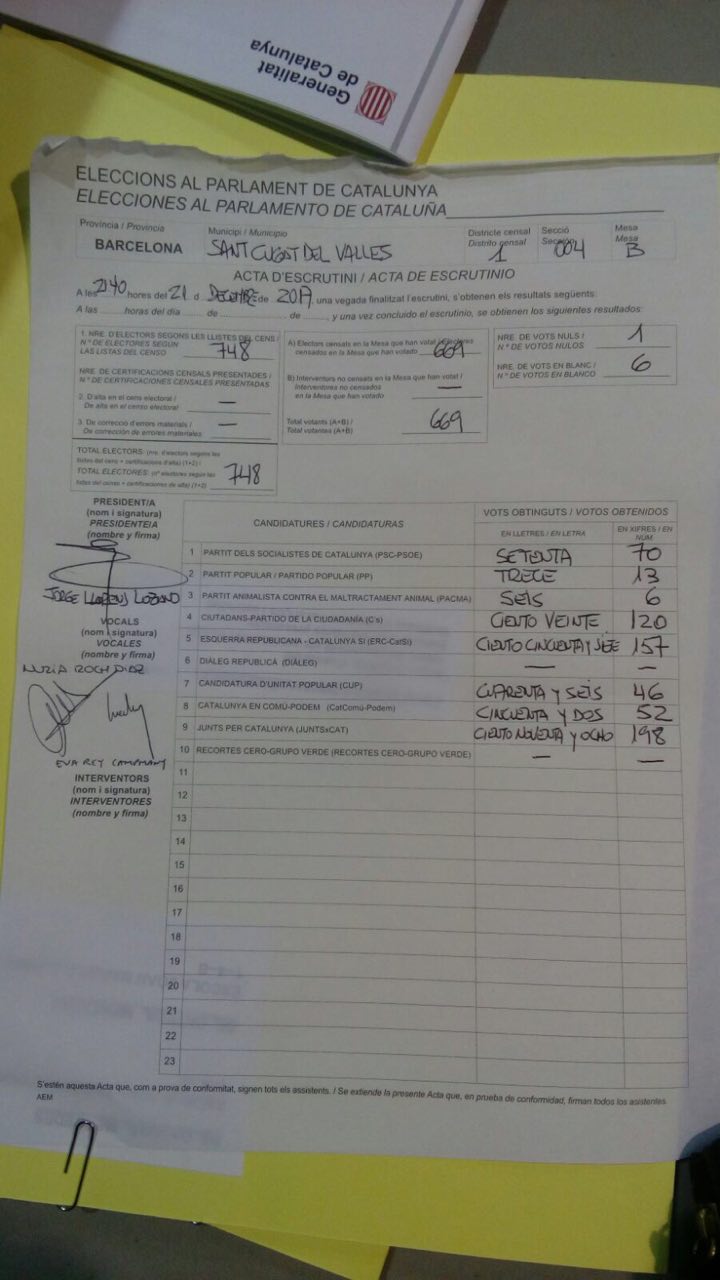 Generalitat
de Catalunya
ELECCIONS AL PARLAMENT DE CATALUNYA
ELECCIONES AL PARLAMENTO DE CATALUÑA
Província / Provincia
BARCELONA
Municipi / Municipio
SANT CUGAT DEL VALLES
Districte censal
Distrito censal
1
Secció
Sección
004
Mesa
Mesa
B
ACTA D'ESCRUTINI / ACTA DE ESCRUTINIO
A les 2140 hores del 21 d DECEMBRE de 2017, una vegada finalitzat l'escrutini, s'obtenen els resultats següents:
A las ......... horas del día ......... de ......... de ........., y una vez concluido el escrutinio, se obtienen los siguientes resultados:
1. NRE. D'ELECTORS SEGONS LES LLISTES DEL CENS /
N.º DE ELECTORES SEGÚN
LAS LISTAS DEL CENSO
748
NRE. DE CERTIFICACIONS CENSALS PRESENTADES /
N.º DE CERTIFICACIONES CENSALES PRESENTADAS
2. D'alta en el cens electoral /
De alta en el censo electoral
—
3. De correcció d'errors materials /
De corrección de errores materiales
—
TOTAL ELECTORS: (nre. d'electors segons les
llistes del cens + certificacions d'alta) (1+2) /
TOTAL ELECTORES: (nº electores según las
listas del censo + certificaciones de alta) (1+2)
748
A) Electors censats en la Mesa que han votat / Electores
censados en la Mesa que han votado
669
B) Interventors no censats en la Mesa que han votat /
Interventores no censados
en la Mesa que han votado
—
Total votants (A+B) /
Total votantes (A+B)
669
NRE. DE VOTS NULS /
N.º DE VOTOS NULOS
1
NRE. DE VOTS EN BLANC /
N.º DE VOTOS EN BLANCO
6
PRESIDENT/A
(nom i signatura)
PRESIDENTE/A
(nombre y firma)
JORGE LLORENS LOZANO
VOCALS
(nom i signatura)
VOCALES
(nombre y firma)
NURIA ROCH DIAZ
EVA REY CAMPMANY
INTERVENTORS
(nom i signatura)
INTERVENTORES
(nombre y firma)
CANDIDATURES / CANDIDATURAS
VOTS OBTINGUTS / VOTOS OBTENIDOS
EN LLETRES / EN LETRA
EN XIFRES / EN NÚM
1 PARTIT DELS SOCIALISTES DE CATALUNYA (PSC-PSOE) SETENTA 70
2 PARTIT POPULAR / PARTIDO POPULAR (PP) TRECE 13
3 PARTIT ANIMALISTA CONTRA EL MALTRACTAMENT ANIMAL (PACMA) SEIS 6
4 CIUTADANS-PARTIDO DE LA CIUDADANÍA (C's) CIENTO VEINTE 120
5 ESQUERRA REPUBLICANA - CATALUNYA SÍ (ERC-CatSí) CIENTO CINCUENTA Y SIETE 157
6 DIÀLEG REPUBLICÀ (DIÀLEG) — —
7 CANDIDATURA D'UNITAT POPULAR (CUP) CUARENTA Y SEIS 46
8 CATALUNYA EN COMÚ-PODEM (CatComú-Podem) CINCUENTA Y DOS 52
9 JUNTS PER CATALUNYA (JUNTSxCAT) CIENTO NOVENTA Y OCHO 198
10 RECORTES CERO-GRUPO VERDE (RECORTES CERO-GRUPO VERDE) — —
11
12
13
14
15
16
17
18
19
20
21
22
23
S'estén aquesta Acta que, com a prova de conformitat, signen tots els assistents. / Se extiende la presente Acta que, en prueba de conformidad, firman todos los asistentes.
AEM